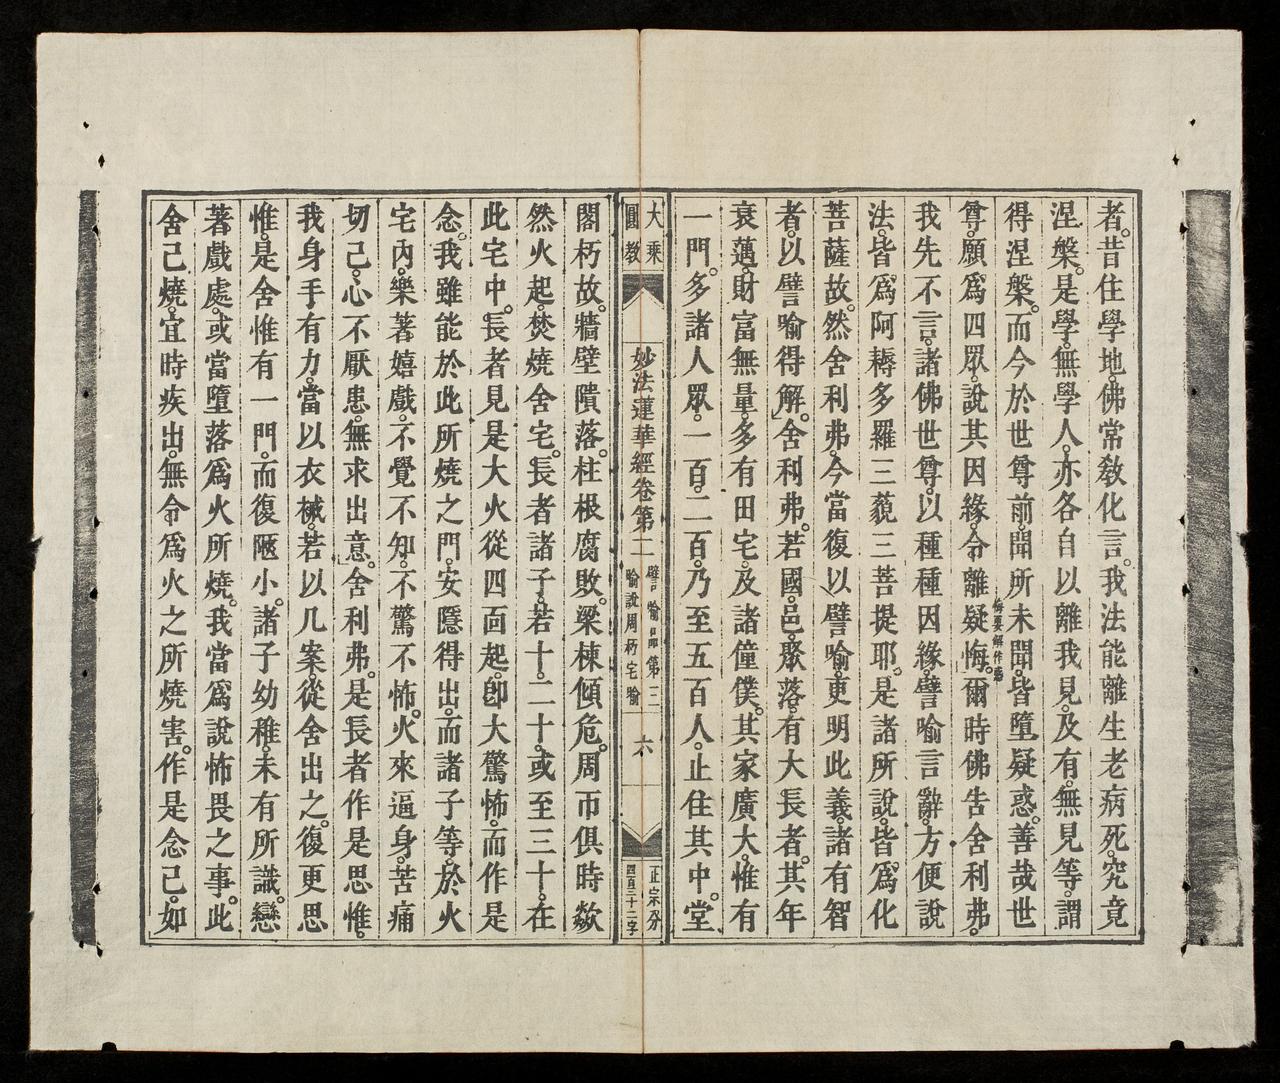 者。昔住學地。佛常敎化言。我法能離生老病死。究竟
涅槃。是學。無學人。亦各自以離我見。及有。無見等。謂
得涅槃。而今於世尊前。聞所未聞。皆墮疑惑。善哉世
尊。願爲四眾。說其因緣。令離疑悔。爾時佛告舍利弗。
我先不言。諸佛世尊。以種種因緣。譬喻言辭。方便說
法。皆爲阿耨多羅三藐三菩提耶。是諸所說。皆爲化
菩薩故。然舍利弗。今當復以譬喻。更明此義。諸有智
者。以譬喻得解。」舍利弗。若國。邑。聚落。有大長者。其年
衰邁。財富無量。多有田宅。及諸僮僕。其家廣大。惟有
一門。多諸人眾。一百。二百。乃至五百人。止住其中。堂
大乘
圓教
妙法蓮華經卷第二
譬喻品第三
喻說周朽宅喻
六
正宗分
四百三十二字
閣朽故。牆壁隤落。柱根腐敗。梁棟傾危。周帀俱時歘
然火起。焚燒舍宅。長者諸子。若十。二十。或至三十。在
此宅中。長者見是大火從四面起。卽大驚怖。而作是
念。我雖能於此所燒之門。安隱得出。而諸子等。於火
宅內。樂著嬉戲。不覺不知。不驚不怖。火來逼身。苦痛
切己。心不厭患。無求出意。」舍利弗。是長者作是思惟。
我身手有力。當以衣裓。若以几案。從舍出之。復更思
惟。是舍惟有一門。而復陿小。諸子幼稚。未有所識。戀
著戲處。或當墮落爲火所燒。我當爲說怖畏之事。此
舍己燒。宜時疾出。無令爲火之所燒害。作是念己。如